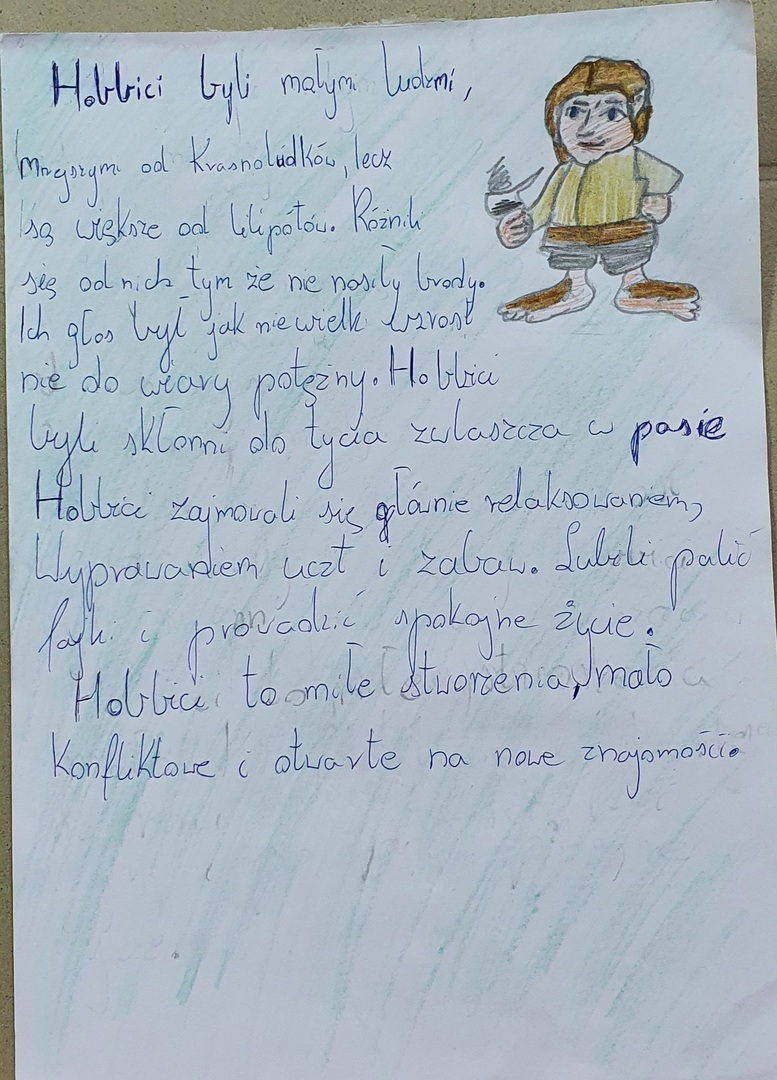 Hobbici byli małymi ludzmi,
Mniejszymi od Krasnoludków, lecz
są większe od liliputów. Różnili
się od nich tym że nie nosiły brody.
Ich głos był jak niewielki wzrost
nie do wiary potężny. Hobbici
byli skłonni do tycia zwlaszcza w pasie
Hobbici zajmowali się głównie relaksowaniem,
Wyprawianiem uczt i zabaw. Lubili palić
fajki i prowadzić spokojne życie.
Hobbici to miłe stworzenia, mało
Konfliktowe i otwarte na nowe znajomości.